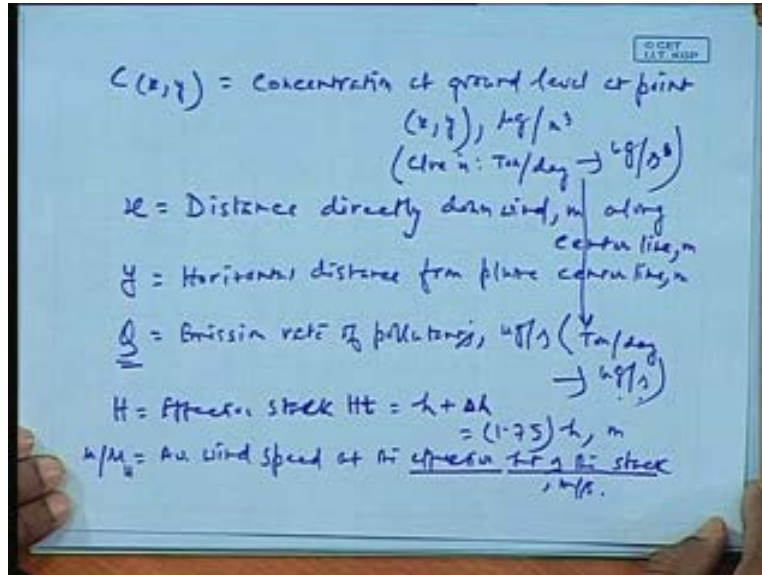 © CET
I.I.T. KGP
C(x,y) = Concentratin at ground level at point
(x,y), µg/m³
: Ton/day → µg/
x = Distance directly down wind, m along
center line, m
y = Horizontal distance from plume center line, m
Q = Emission rate of pollutants, µg/s (Ton/day
→ µg/s)
H = Effective stack Ht = h + Δh
= (1.75) h, m
= Av. wind speed at the effective ht of the stack
, m/s.